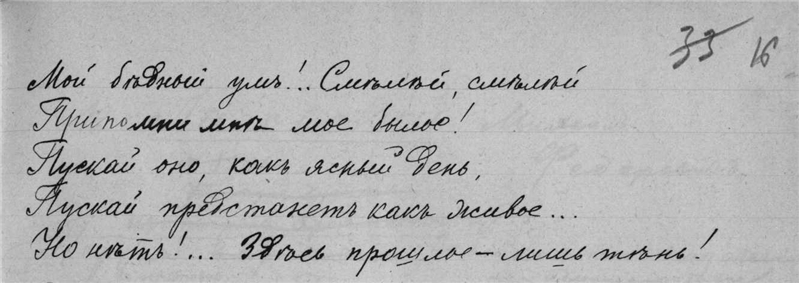 33 16
Мой бѣдный умъ!.. Смѣлѣй, смѣлѣй
Припомни мнѣ мое былое!
Пускай оно, какъ ясный день,
Пускай предстанетъ какъ живое...
Но нѣтъ!... Здѣсь прошлое – лишь тѣнь!